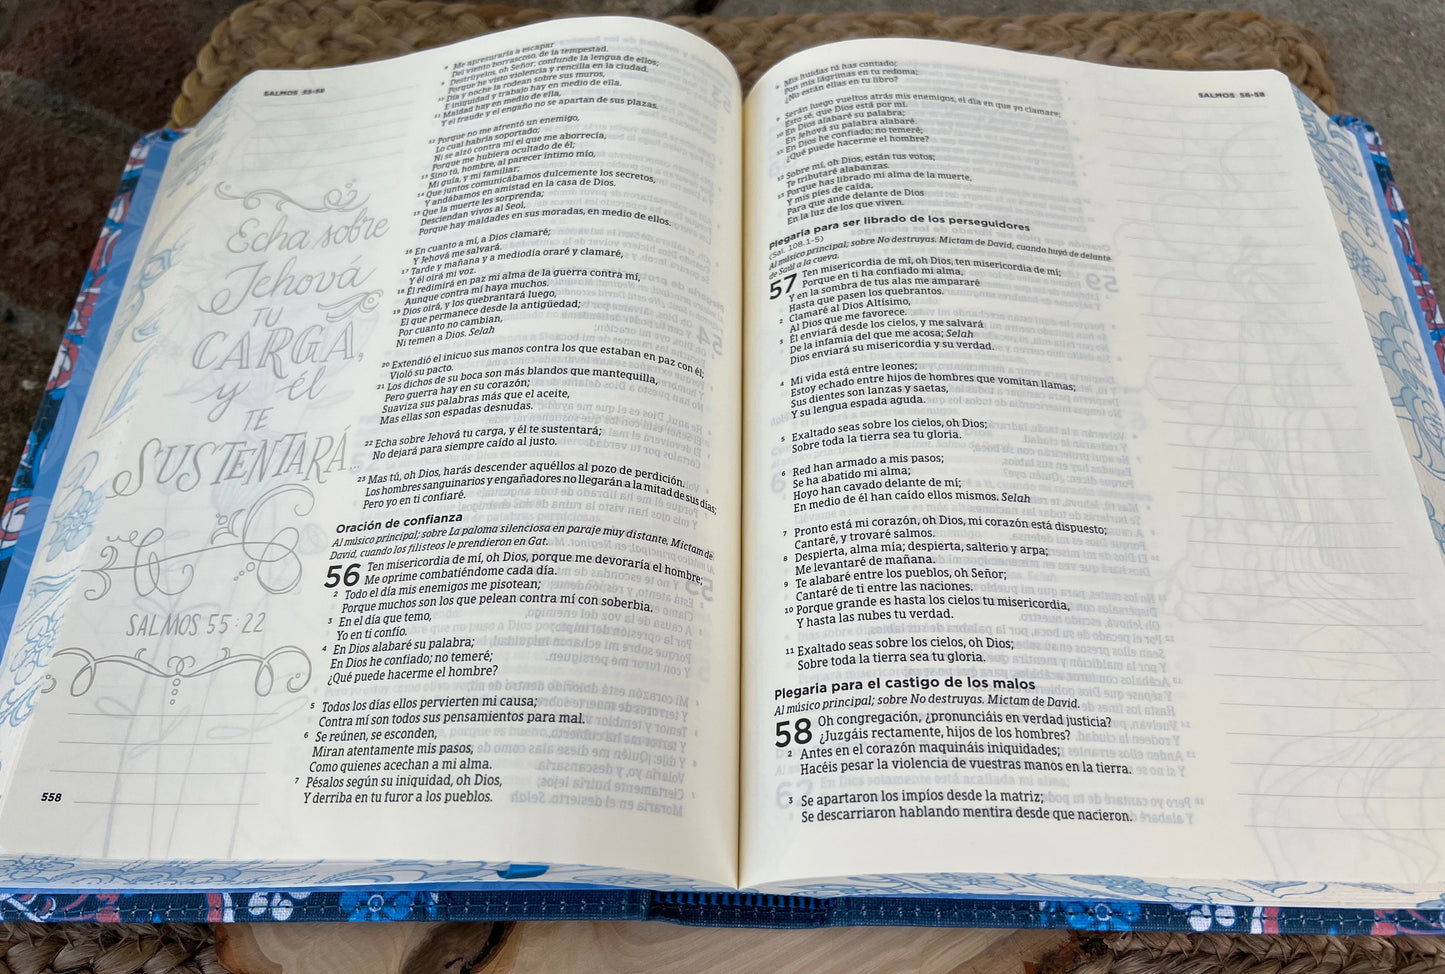 SALMOS 55-56
Echa sobre
Jehova
TU
CARGA,
y él
TE
SUSTENTARÁ...
SALMOS 55:22
558
Me apresuraría a escapar
Del viento borrascoso, de la tempestad.
9 Destrúyelos, oh Señor; confunde la lengua de ellos;
Porque he visto violencia y rencilla en la ciudad.
10 Día y noche la rodean sobre sus muros,
E iniquidad y trabajo hay en medio de ella.
11 Maldad hay en medio de ella,
Y el fraude y el engaño no se apartan de sus plazas.
12 Porque no me afrentó un enemigo,
Lo cual habría soportado;
Ni se alzó contra mí el que me aborrecía,
Porque me hubiera ocultado de él;
13 Sino tú, hombre, al parecer íntimo mío,
Mi guía, y mi familiar;
14 Que juntos comunicábamos dulcemente los secretos,
Y andábamos en amistad en la casa de Dios.
15 Que la muerte les sorprenda;
Desciendan vivos al Seol,
Porque hay maldades en sus moradas, en medio de ellos.
16 En cuanto a mí, a Dios clamaré;
Y Jehová me salvará.
17 Tarde y mañana y a mediodía oraré y clamaré,
Y él oirá mi voz.
18 Él redimirá en paz mi alma de la guerra contra mí,
Aunque contra mí haya muchos.
19 Dios oirá, y los quebrantará luego,
El que permanece desde la antigüedad;
Por cuanto no cambian,
Ni temen a Dios. Selah
20 Extendió el inicuo sus manos contra los que estaban en paz con él;
Violó su pacto.
21 Los dichos de su boca son más blandos que mantequilla,
Pero guerra hay en su corazón;
Suaviza sus palabras más que el aceite,
Mas ellas son espadas desnudas.
22 Echa sobre Jehová tu carga, y él te sustentará;
No dejará para siempre caído al justo.
23 Mas tú, oh Dios, harás descender aquéllos al pozo de perdición.
Los hombres sanguinarios y engañadores no llegarán a la mitad de sus días;
Pero yo en ti confiaré.
Oración de confianza
Al músico principal; sobre La paloma silenciosa en paraje muy distante. Mictam de
David, cuando los filisteos le prendieron en Gat.
56 Ten misericordia de mí, oh Dios, porque me devoraría el hombre;
Me oprime combatiéndome cada día.
2 Todo el día mis enemigos me pisotean;
Porque muchos son los que pelean contra mí con soberbia.
3 En el día que temo,
Yo en ti confío.
4 En Dios alabaré su palabra;
En Dios he confiado; no temeré;
¿Qué puede hacerme el hombre?
5 Todos los días ellos pervierten mi causa;
Contra mí son todos sus pensamientos para mal.
6 Se reúnen, se esconden,
Miran atentamente mis pasos,
Como quienes acechan a mi alma.
7 Pésalos según su iniquidad, oh Dios,
Y derriba en tu furor a los pueblos.
SALMOS 56-58
8 Mis huidas tú has contado;
Pon mis lágrimas en tu redoma;
¿No están ellas en tu libro?
9 Serán luego vueltos atrás mis enemigos, el día en que yo clamare;
Esto sé, que Dios está por mí.
10 En Dios alabaré su palabra;
En Jehová su palabra alabaré.
11 En Dios he confiado; no temeré;
¿Qué puede hacerme el hombre?
12 Sobre mí, oh Dios, están tus votos;
Te tributaré alabanzas.
13 Porque has librado mi alma de la muerte,
Y mis pies de caída,
Para que ande delante de Dios
En la luz de los que viven.
Plegaria para ser librado de los perseguidores
(Sal. 108.1-5)
Al músico principal; sobre No destruyas. Mictam de David, cuando huyó de delante
de Saúl a la cueva.
57 Ten misericordia de mí, oh Dios, ten misericordia de mí;
Porque en ti ha confiado mi alma,
Y en la sombra de tus alas me ampararé
Hasta que pasen los quebrantos.
2 Clamaré al Dios Altísimo,
Al Dios que me favorece.
3 Él enviará desde los cielos, y me salvará
De la infamia del que me acosa; Selah
Dios enviará su misericordia y su verdad.
4 Mi vida está entre leones;
Estoy echado entre hijos de hombres que vomitan llamas;
Sus dientes son lanzas y saetas,
Y su lengua espada aguda.
5 Exaltado seas sobre los cielos, oh Dios;
Sobre toda la tierra sea tu gloria.
6 Red han armado a mis pasos;
Se ha abatido mi alma;
Hoyo han cavado delante de mí;
En medio de él han caído ellos mismos. Selah
7 Pronto está mi corazón, oh Dios, mi corazón está dispuesto;
Cantaré, y trovaré salmos.
8 Despierta, alma mía; despierta, salterio y arpa;
Me levantaré de mañana.
9 Te alabaré entre los pueblos, oh Señor;
Cantaré de ti entre las naciones.
10 Porque grande es hasta los cielos tu misericordia,
Y hasta las nubes tu verdad.
11 Exaltado seas sobre los cielos, oh Dios;
Sobre toda la tierra sea tu gloria.
Plegaria para el castigo de los malos
Al músico principal; sobre No destruyas. Mictam de David.
58 Oh congregación, ¿pronunciáis en verdad justicia?
¿Juzgáis rectamente, hijos de los hombres?
2 Antes en el corazón maquináis iniquidades;
Hacéis pesar la violencia de vuestras manos en la tierra.
3 Se apartaron los impíos desde la matriz;
Se descarriaron hablando mentira desde que nacieron.